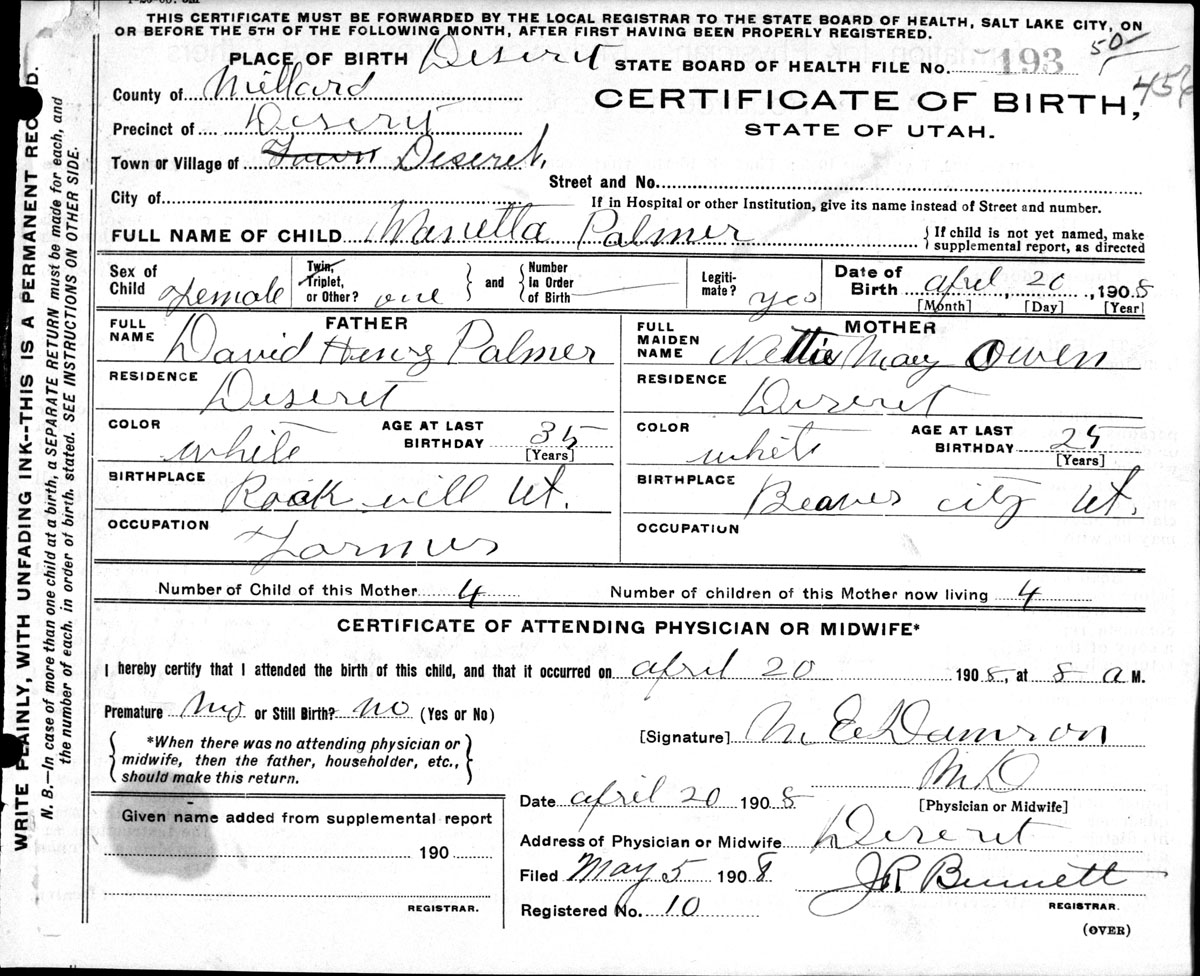 THIS CERTIFICATE MUST BE FORWARDED BY THE LOCAL REGISTRAR TO THE STATE BOARD OF HEALTH, SALT LAKE CITY, ON
OR BEFORE THE 5TH OF THE FOLLOWING MONTH, AFTER FIRST HAVING BEEN PROPERLY REGISTERED.
PLACE OF BIRTH Deseret STATE BOARD OF HEALTH FILE No. 193 50 456
County of Millard
CERTIFICATE OF BIRTH,
STATE OF UTAH.
Precinct of Deseret
Town or Village of Town Deseret,
Street and No.
City of
If in Hospital or other Institution, give its name instead of Street and number.
FULL NAME OF CHILD Marietta Palmer {If child is not yet named, make supplemental report, as directed
Sex of Child Female Twin, Triplet, or Other? one } and { Number In Order of Birth Legiti-mate? yes Date of Birth april 20, 1908
[Month] [Day] [Year]
FATHER
FULL NAME David Henry Palmer
RESIDENCE Deseret
COLOR white AGE AT LAST BIRTHDAY 35
[Years]
BIRTHPLACE Rockvill Ut.
OCCUPATION Farmer
MOTHER
FULL MAIDEN NAME Nettie May Owen
RESIDENCE Deseret
COLOR white AGE AT LAST BIRTHDAY 25
[Years]
BIRTHPLACE Beaver city Ut.
OCCUPATION
Number of Child of this Mother 4 Number of children of this Mother now living 4
CERTIFICATE OF ATTENDING PHYSICIAN OR MIDWIFE*
I hereby certify that I attended the birth of this child, and that it occurred on april 20 1908, at 8 a M.
Premature no or Still Birth? no (Yes or No)
[Signature] M E Damron
M.D
[Physician or Midwife]
{*When there was no attending physician or
midwife, then the father, householder, etc.,
should make this return.}
Date april 20 1908
Address of Physician or Midwife Deseret
Filed May 5 1908 J R Bennett
REGISTRAR.
Registered No. 10
(OVER)
Given name added from supplemental report
190
REGISTRAR.
WRITE PLAINLY, WITH UNFADING INK--THIS IS A PERMANENT RECORD.
N. B.—In case of more than one child at a birth, a SEPARATE RETURN must be made for each, and
the number of each, in order of birth, stated. SEE INSTRUCTIONS ON OTHER SIDE.